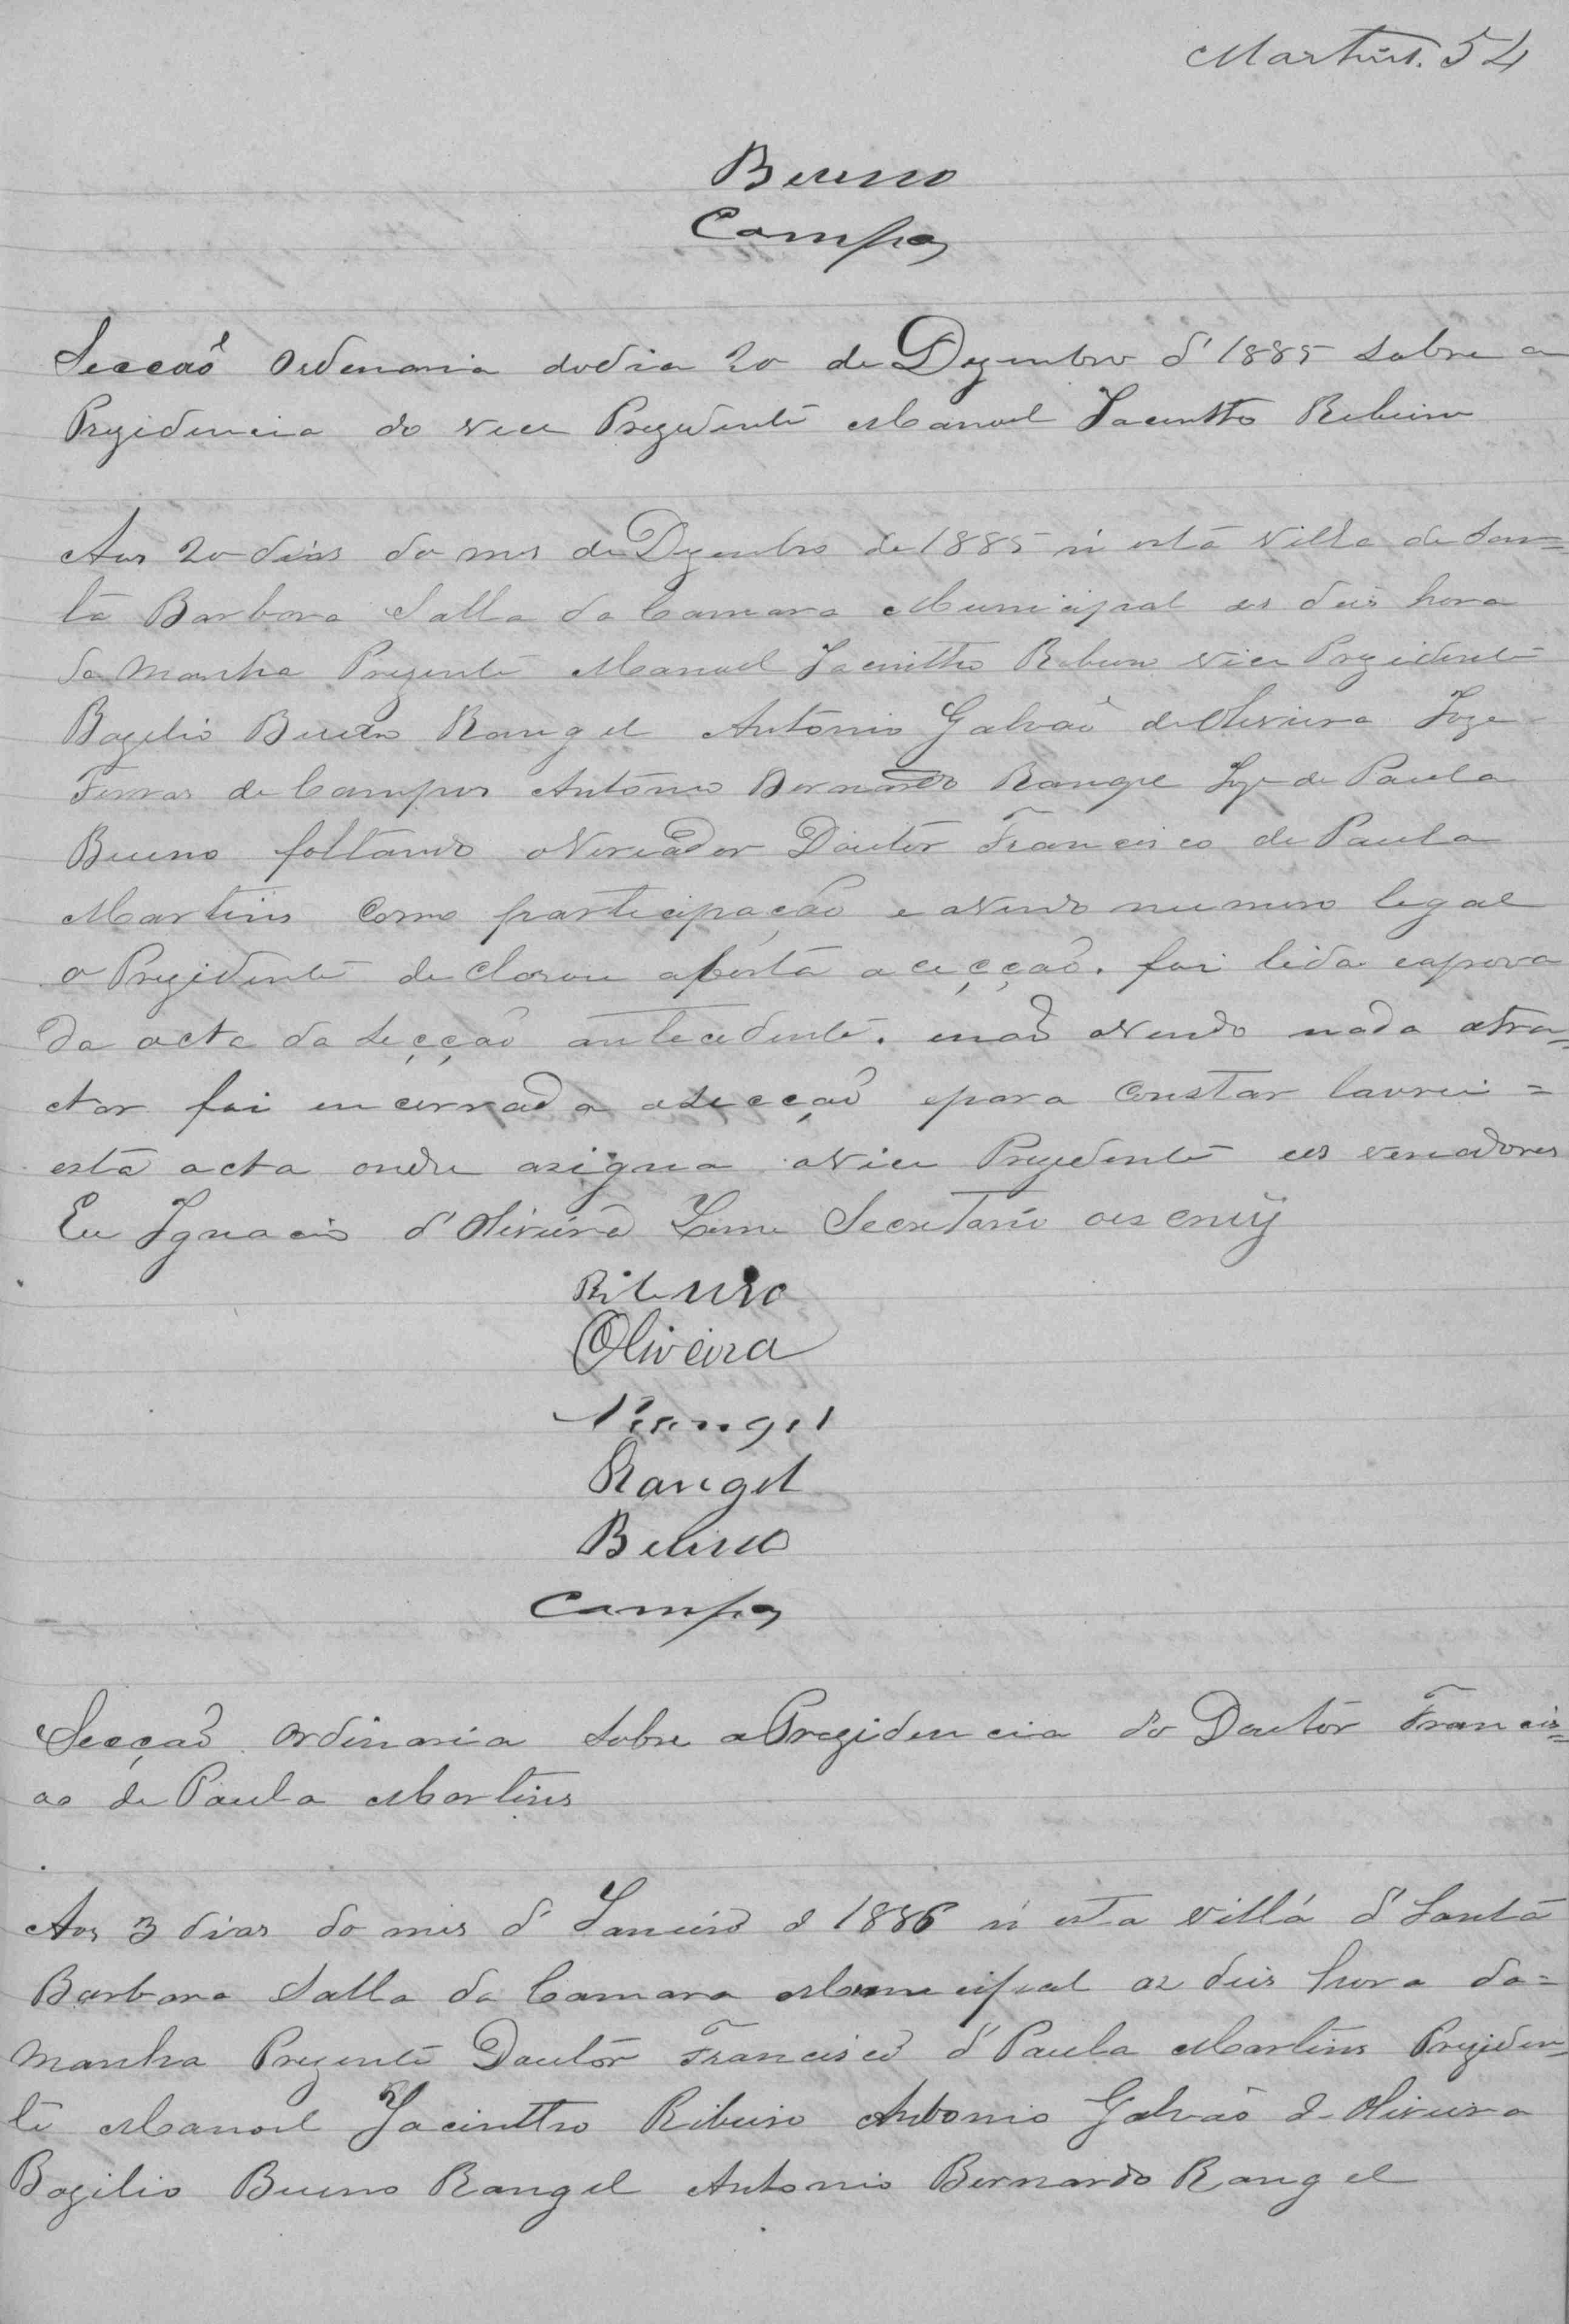 Martins. 54
Bueno
Campos
Secçaõ Ordenaria do dia 20 de Dezembro d'1885 sobre a
Prezidencia do vice Prezidente Manoel Jacintho Ribeiro
Aos 20 dias do mes de Dezembro de 1885 n'esta villa de San=
ta Barbara Salla da Camara Municipal as deis hora
da Manha Prezente Manoel Jacintho Ribeiro vice Prezidente
Bazilio Bueno Rangel Antonio Galvaõ de Oliveira Joze
Ferras de Campos Antonio Bernardo Rangel Joze de Paula
Bueno faltando o Vereador Doutor Francisco de Paula
Martins Come participação e avendo numero legal
o Prezidente declarou aberta a cecçaõ. foi lida e aprova
da acta da secção antecedente. enaõ avendo nada atra=
ctar foi encerrada a secçaõ e para constar lavrei=
esta acta onde asigna o vice Prezidente e os vereadores
Eu Ignacio d'Oliveira Leme Secretario oescrevy
Ribeiro
Oliveira
Rangel
Rangel
Bueno
Campos
Secçaõ Ordinaria sobre a Prezidencia do Doutor Francis=
co de Paula Martins
Aos 3 dias do mes d' Janeiro d 1886 n'esta villa d' Santa
Barbara Salla da Camara Municipal as deis hora da=
Manha Prezente Doutor Francisco d' Paula Martins Preziden=
te Manoel Jacinttho Ribeiro Antonio Galvaõ d Oliveira
Bazilio Bueno Rangel Antonio Bernardo Rangel